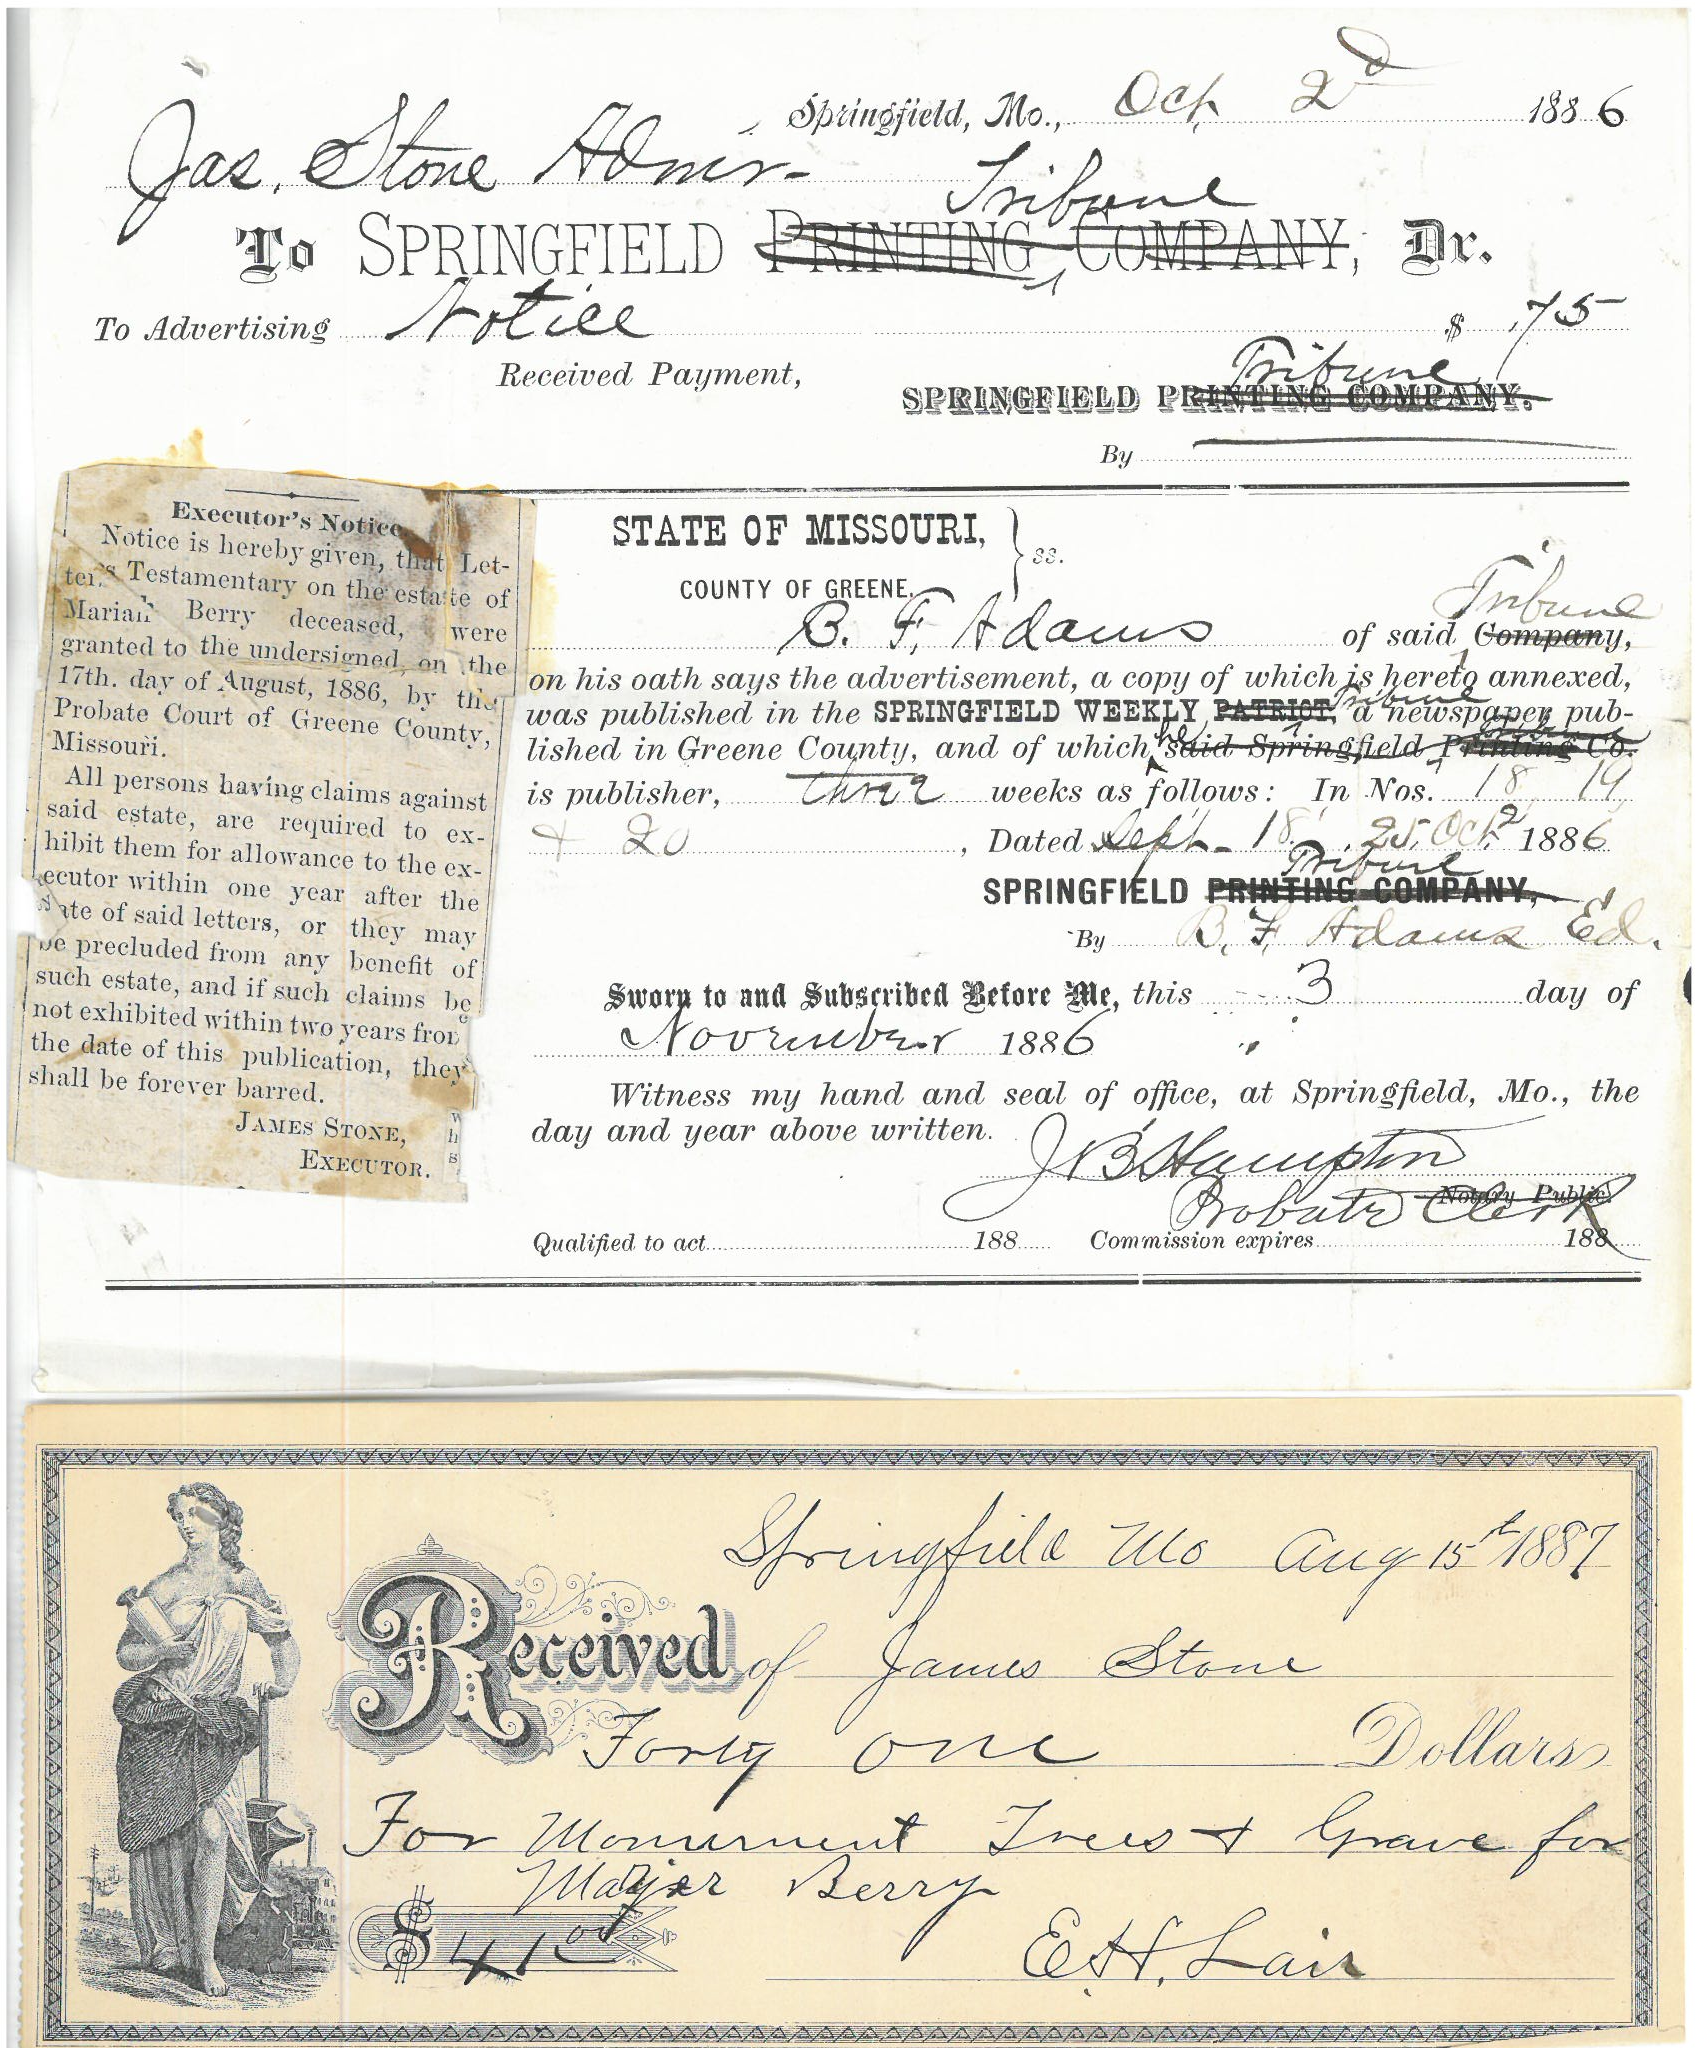 Springfield, Mo., Oct. 2d 1886
Jas. Stone Admr.
Tribune
To SPRINGFIELD PRINTING COMPANY, Dr.
To Advertising Notice $ .75
Received Payment,
Tribune
SPRINGFIELD PRINTING COMPANY.
By
Executor's Notice
Notice is hereby given, that Let-
ters Testamentary on the estate of
Mariah Berry deceased, were
granted to the undersigned, on the
17th. day of August, 1886, by the
Probate Court of Greene County,
Missouri.
All persons having claims against
said estate, are required to ex-
hibit them for allowance to the ex-
ecutor within one year after the
date of said letters, or they may
be precluded from any benefit of
such estate, and if such claims be
not exhibited within two years from
the date of this publication, they
shall be forever barred.
JAMES STONE,
EXECUTOR.
STATE OF MISSOURI,
ss.
COUNTY OF GREENE.
Tribune
B. F. Adams of said Company,
on his oath says the advertisement, a copy of which is hereto annexed,
Tribune
was published in the SPRINGFIELD WEEKLY PATRIOT, a newspaper pub-
he
lished in Greene County, and of which said Springfield Printing Co.
is publisher, three weeks as follows: In Nos. 18, 19,
+ 20, Dated Sept. 18, 25, Oct. 2 1886
Tribune
SPRINGFIELD PRINTING COMPANY,
By B. F. Adams Ed.
Sworn to and Subscribed Before Me, this 3 day of
November 1886
Witness my hand and seal of office, at Springfield, Mo., the
day and year above written.
J B Hampton
Notary Public.
Probate Clerk
Qualified to act 188 Commission expires 188
Springfield Mo Aug 15th 1887
Received of James Stone
Forty one Dollars
For Monument Trees + Grave for
Majer Berry
$ 41 00
E. H. Lair